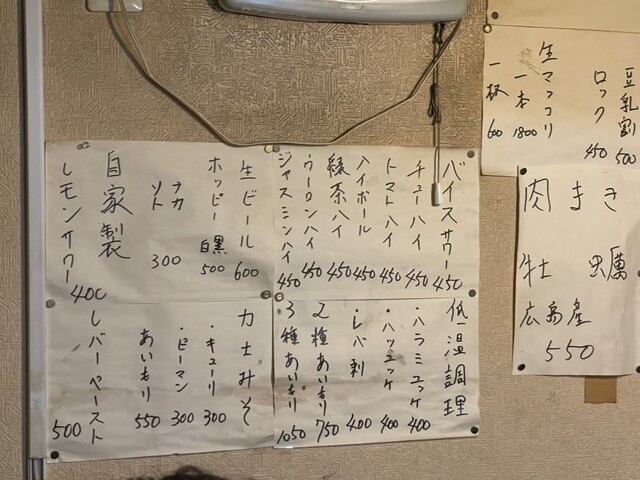 バイスサワー 450
チューハイ 450
トマトハイ 450
ハイボール 450
緑茶ハイ 450
ウーロンハイ 450
ジャスミンハイ 450
生ビール 600
ホッピー 白黒 500
ナカ
ソト 300
自家製
レモンサワー 400
低温調理
・ハラミユッケ 400
・ハツユッケ 400
・レバ刺 400
2種あいもり 750
3種あいもり 1050
力士みそ
・キューリ 300
・ピーマン 300
あいもり 550
レバーペースト 500
豆乳割 500
ロック 450
生マッコリ
一本 1800
一杯 600
肉まき
牡蠣
広島産
550